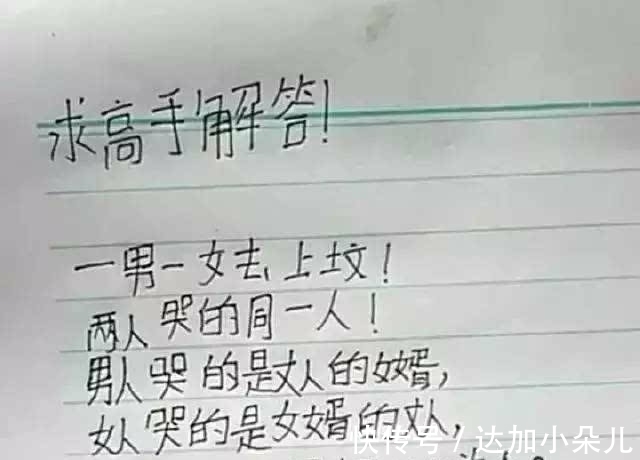 求高手解答!
一男一女去上坟!
两人哭的同一人!
男人哭的是丈人的女婿,
女人哭的是女婿的丈人,
快传号/达加小朵儿